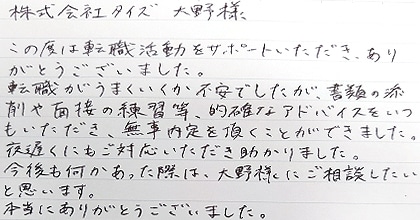 株式会社タイズ 大野様
この度は転職活動をサポートいただき、あり
がとうございました。
転職がうまくいくか不安でしたが、書類の添
削や面接の練習等、的確なアドバイスをいつ
もいただき、無事内定を頂くことができました。
夜遅くにもご対応いただき助かりました。
今後も何かあった際は、大野様にご相談したい
と思います。
本当にありがとうございました。